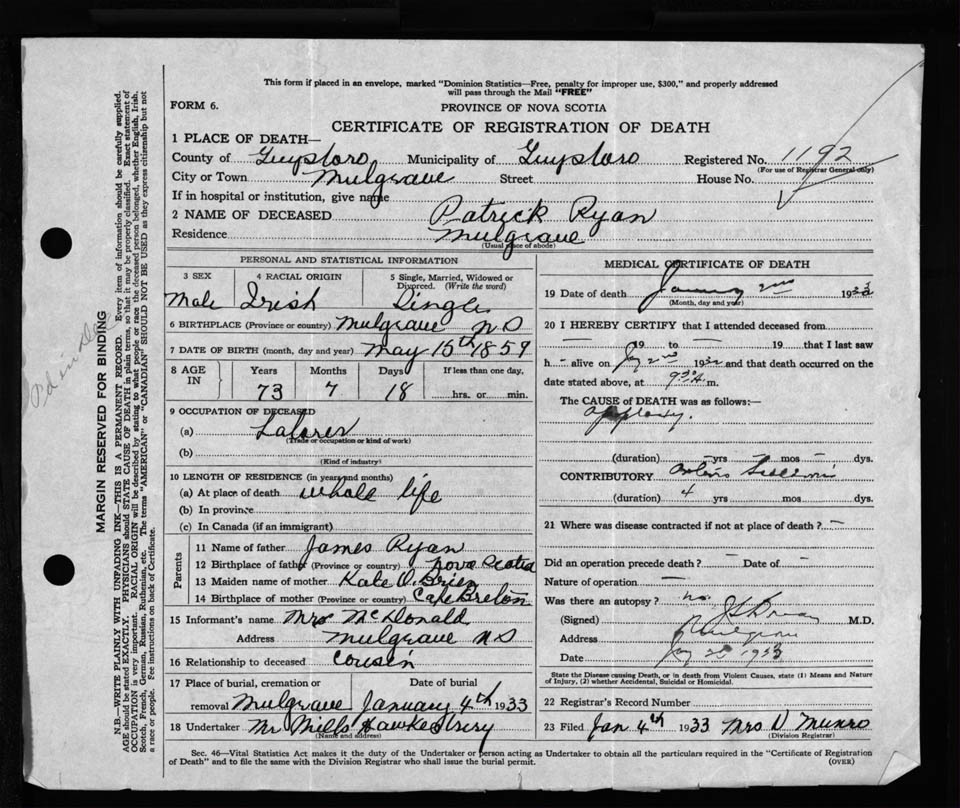 This form if placed in an envelope, marked "Dominion Statistics—Free, penalty for improper use, $300," and properly addressed
will pass through the Mail "FREE"
FORM 6.
PROVINCE OF NOVA SCOTIA
CERTIFICATE OF REGISTRATION OF DEATH
1 PLACE OF DEATH—
County of Guysboro Municipality of Guysboro Registered No. 1192
(For use of Registrar General only)
City or Town Mulgrave Street House No.
If in hospital or institution, give name
2 NAME OF DECEASED Patrick Ryan
Residence Mulgrave
(Usual place of abode)
PERSONAL AND STATISTICAL INFORMATION
3 SEX 4 RACIAL ORIGIN 5 Single, Married, Widowed or
Divorced. (Write the word)
Male Irish Single
6 BIRTHPLACE (Province or country) Mulgrave N S
7 DATE OF BIRTH (month, day and year) May 15th 1859
8 AGE IN Years Months Days If less than one day,
73 7 18 hrs. or min.
9 OCCUPATION OF DECEASED
(a) Laborer
(Trade or occupation or kind of work)
(b)
(Kind of industry)
10 LENGTH OF RESIDENCE (in years and months)
(a) At place of death whole life
(b) In province
(c) In Canada (if an immigrant)
Parents
11 Name of father James Ryan
12 Birthplace of father (Province or country) Nova Scotia
13 Maiden name of mother Kate O. Brien
14 Birthplace of mother (Province or country) Cape Breton
15 Informant's name Mrs McDonald
Address Mulgrave N S
16 Relationship to deceased cousin
17 Place of burial, cremation or Date of burial
removal Mulgrave January 4th 1933
18 Undertaker Mr Mills Hawkesbury
(Name and address)
MEDICAL CERTIFICATE OF DEATH
19 Date of death January 2nd 1933
(Month, day and year)
20 I HEREBY CERTIFY that I attended deceased from
— 19 — to — 19 — that I last saw
h — alive on Jay 2nd 19 and that death occurred on the
date stated above, at 9 m.
The CAUSE of DEATH was as follows:—
(duration) — yrs — mos — dys.
CONTRIBUTORY
(duration) 4 yrs mos dys.
21 Where was disease contracted if not at place of death? —
Did an operation precede death? — Date of —
Nature of operation —
Was there an autopsy? no.
(Signed) M.D.
Address Mulgrave
Date 1933
State the Disease causing Death, or in death from Violent Causes, state (1) Means and Nature
of Injury, (2) whether Accidental, Suicidal or Homicidal.
22 Registrar's Record Number
23 Filed Jan 4th 1933 Mrs D Munro
(Division Registrar)
Sec. 46—Vital Statistics Act makes it the duty of the Undertaker or person acting as Undertaker to obtain all the particulars required in the "Certificate of Registration
of Death" and to file the same with the Division Registrar who shall issue the burial permit. (OVER)
MARGIN RESERVED FOR BINDING
N.B.—WRITE PLAINLY WITH UNFADING INK—THIS IS A PERMANENT RECORD. Every item of information should be carefully supplied.
AGE should be stated EXACTLY. PHYSICIANS should STATE CAUSE OF DEATH in plain terms, so that it may be properly classified. Exact statement of
OCCUPATION is very important. RACIAL ORIGIN will be described by stating to what people or race the deceased person belonged, whether English, Irish,
Scotch, French, German, Russian, Ruthenian, etc. The terms "AMERICAN" or "CANADIAN" SHOULD NOT BE USED as they express citizenship but not
a race or people. Fee instructions on back of Certificate.